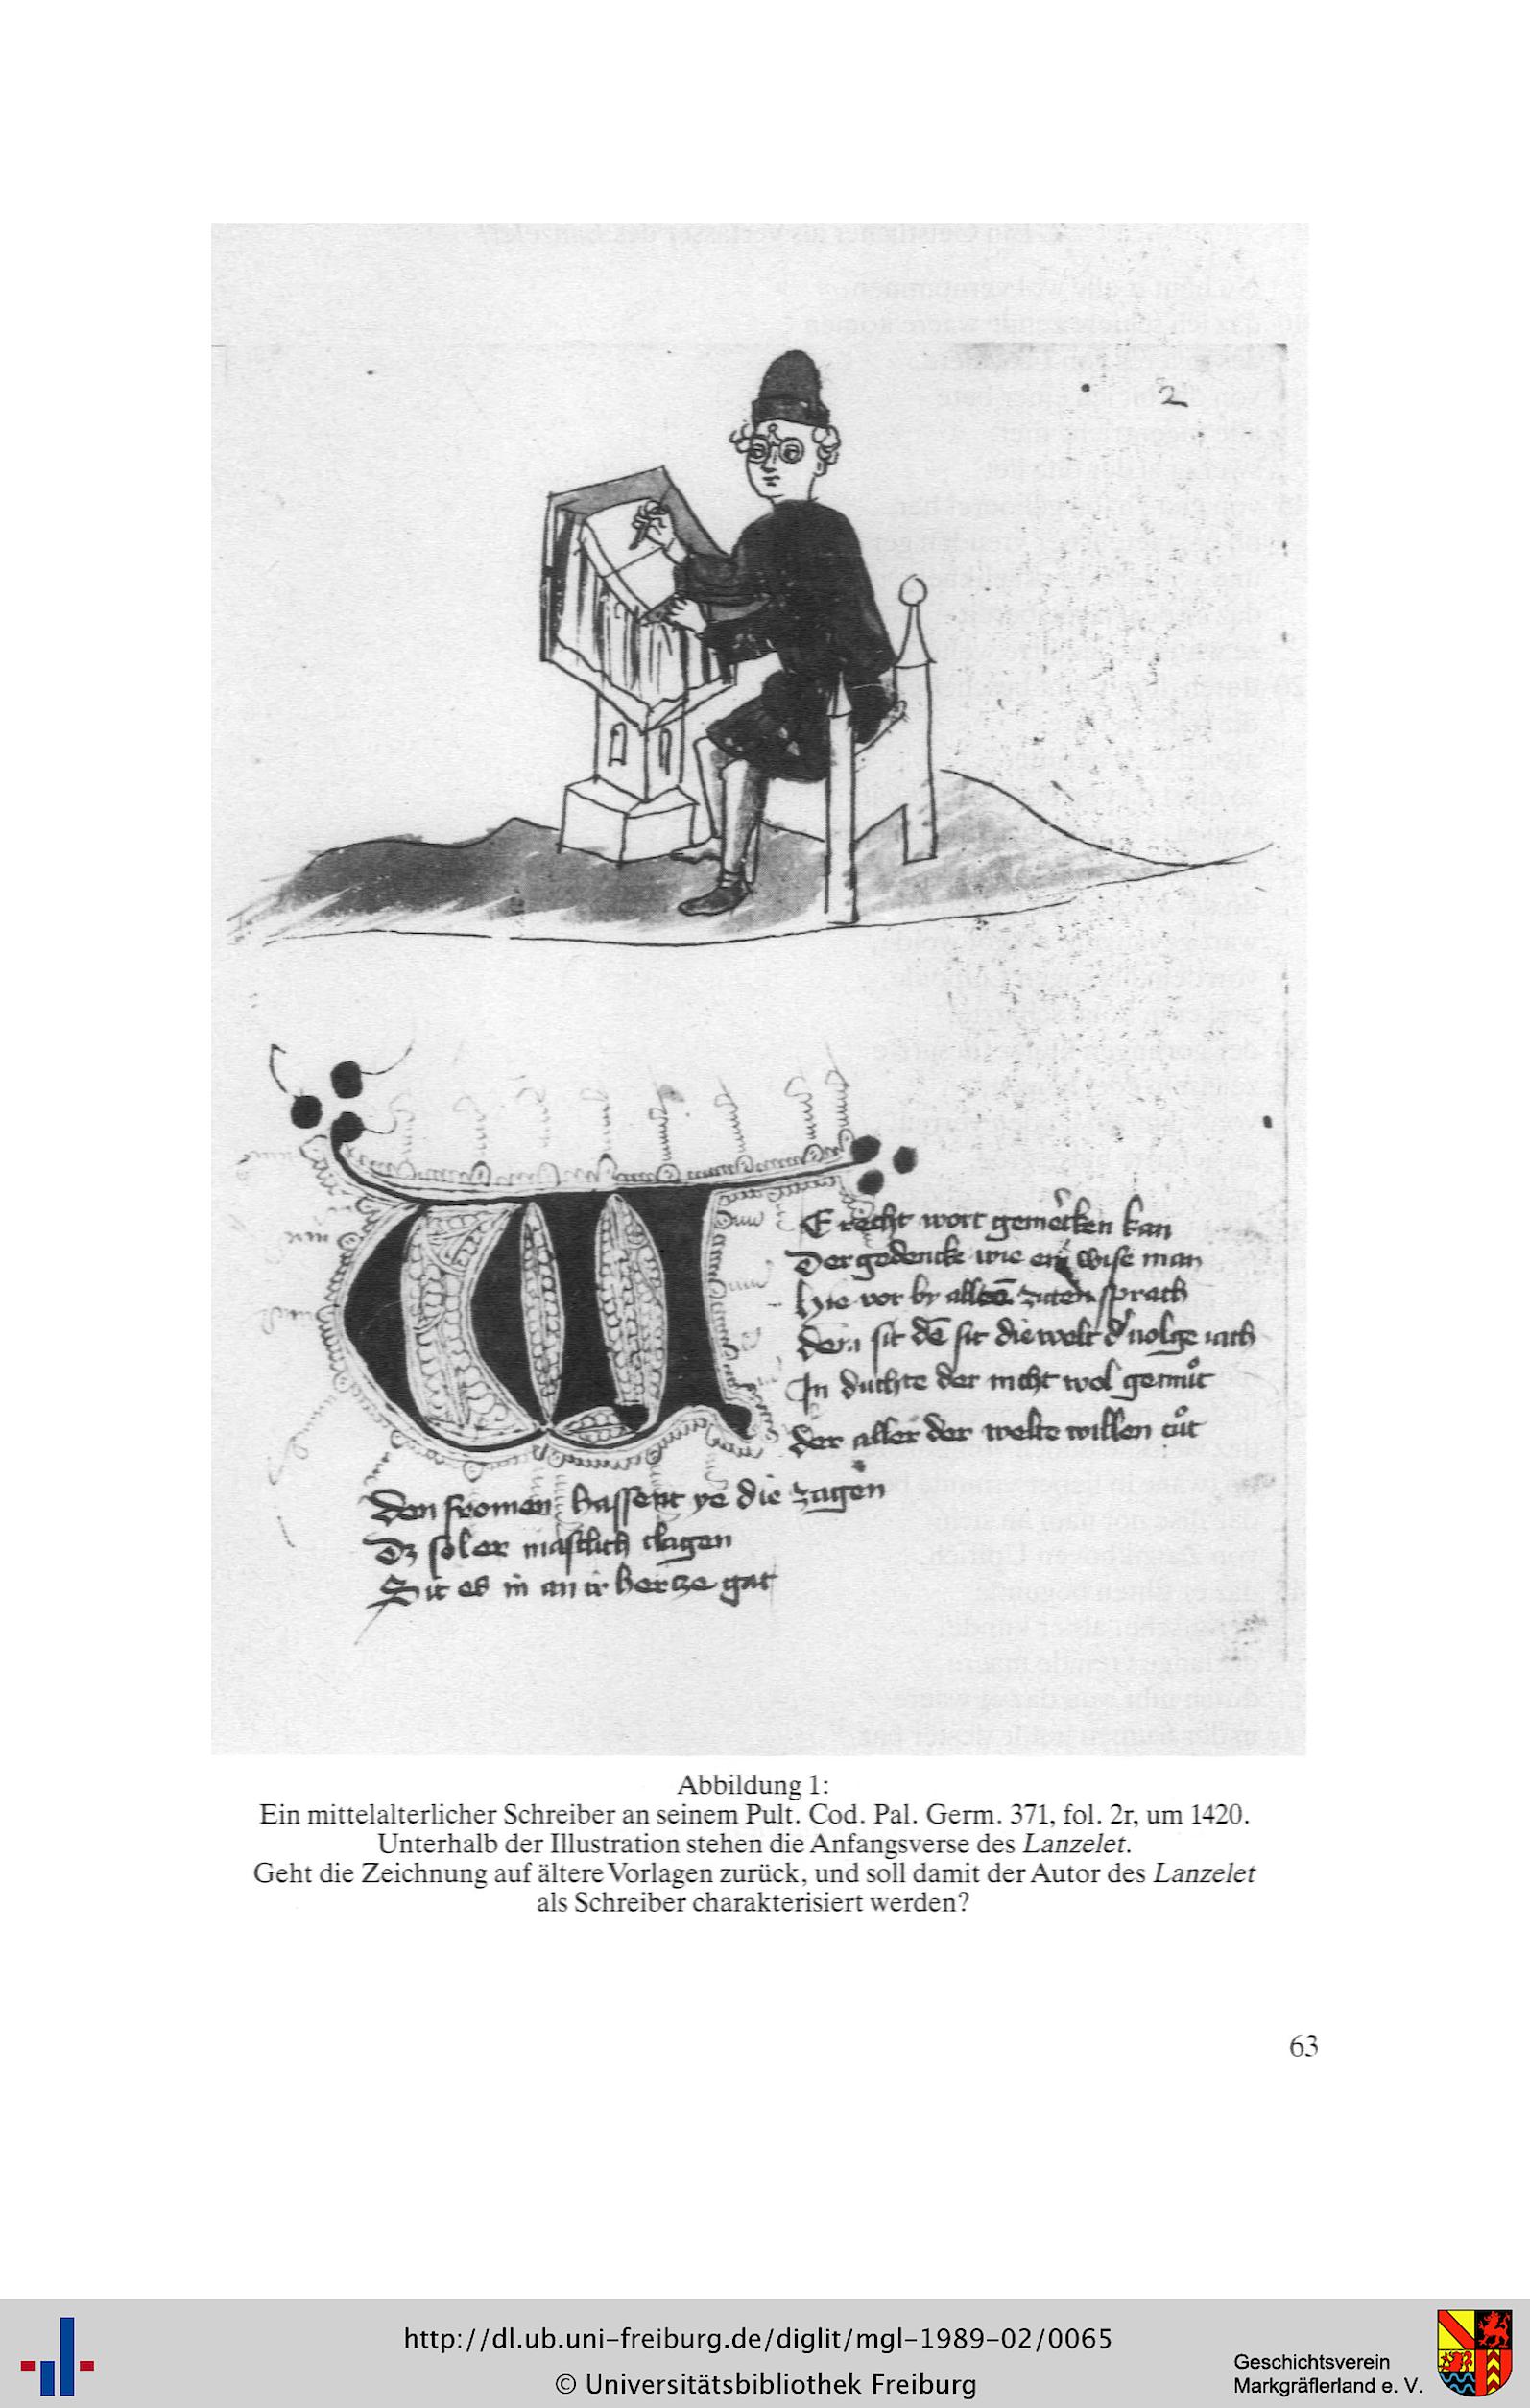 2
WE recht wort gemercken kan
Der gedencke wie ein wise man
Hie vor by allen ziten sprach
Dem sit dē sit die welt d' uolge nach
In duchte der nicht wol gemuͦt
der aller der welte willen tuͦt
den fromen hassent ye die zagen
Dz sol er mästlich clagen
Sit es in an ir hertze gat
Abbildung 1:
Ein mittelalterlicher Schreiber an seinem Pult. Cod. Pal. Germ. 371, fol. 2r, um 1420.
Unterhalb der Illustration stehen die Anfangsverse des Lanzelet.
Geht die Zeichnung auf ältere Vorlagen zurück, und soll damit der Autor des Lanzelet
als Schreiber charakterisiert werden?
63
http://dl.ub.uni-freiburg.de/diglit/mgl-1989-02/0065
© Universitätsbibliothek Freiburg
Geschichtsverein
Markgräflerland e. V.